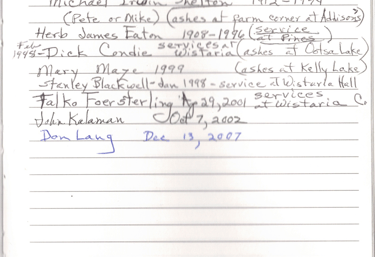 Michael Irwin Skelton 1912-1994
(Pete or Mike) (ashes at farm corner at Addisons?)
Herb James Eaton 1908-1996 (service at Pines)
Feb 1998 - Dick Condie services at Wistaria (ashes at Ootsa Lake)
Mary Maze 1999 (ashes at Kelly Lake)
Stanley Blackwell - Jan 1998 - service at Wistaria Hall
Falko Foersterling Ap 29, 2001 services at Wistaria C
John Kalaman Oct 7, 2002
Don Lang Dec 13, 2007